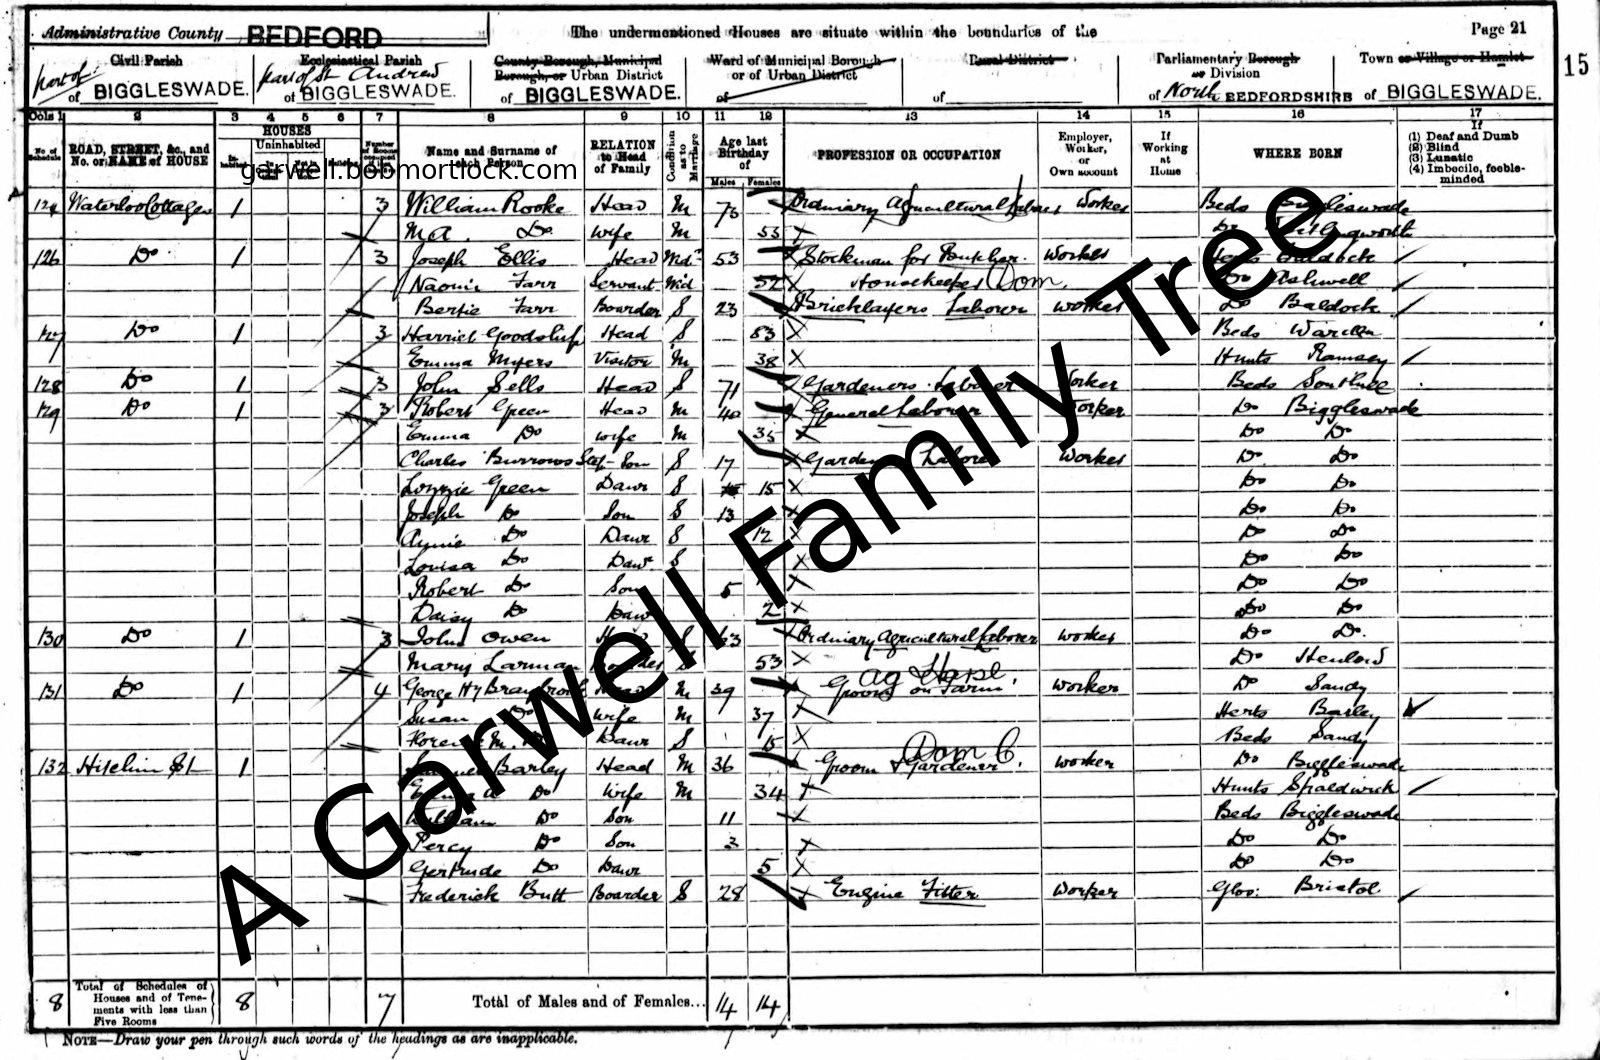 Administrative County BEDFORD The undermentioned Houses are situate within the boundaries of the Page 21
15
Civil Parish Ecclesiastical Parish County Borough, Municipal Ward of Municipal Borough Rural District Parliamentary Borough Town or Village or Hamlet
part of part of St Andrew Borough, or Urban District or of Urban District or Division
of BIGGLESWADE. of BIGGLESWADE. of BIGGLESWADE. of of of North BEDFORDSHIRE of BIGGLESWADE.
Cols 1 2 3 4 5 6 7 8 9 10 11 12 13 14 15 16 17
No. of Schedule ROAD, STREET, &c., and No. or NAME of HOUSE HOUSES Uninhabited Name and Surname of each Person RELATION to Head of Family Condition as to Marriage Age last Birthday of Males Females PROFESSION OR OCCUPATION Employer, Worker, or Own account If Working at Home WHERE BORN If (1) Deaf and Dumb (2) Blind (3) Lunatic (4) Imbecile, feeble-minded
garwell.bobmortlock.com
Waterloo Cottages 1 3 William Rooke Head M Ordinary Agricultural Labourer Worker Beds Biggleswade
M A. Do Wife M 53
126 Do 1 3 Joseph Ellis Head 53 Stockman for Butcher Worker Herts Baldock
Naomi Farr Servant Wid 52 Housekeeper Dom. Do Ashwell
Bertie Farr Boarder S 23 Bricklayers Laborer Worker Do Baldock
127 Do 1 3 Harriet Goodship Head S 53 Beds Warden
Emma Myers Visitor M 38 Hunts Ramsey
128 Do 1 3 John Sells Head S 71 Gardeners Laborer Worker Beds Southill
129 Do 1 3 Robert Green Head M 40 General Laborer Worker Do Biggleswade
Emma Do Wife M 35 Do Do
Charles Burrows Step-Son S 17 Garden Laborer Worker Do Do
Lizzie Green Daur S 15 Do Do
Joseph Do Son S 13 Do Do
Annie Do Daur S 12 Do Do
Louisa Do Daur S Do Do
Robert Do Son 5 Do Do
Daisy Do Daur 2 Do Do
130 Do 1 3 John Owen Head S 63 Ordinary Agricultural Laborer Worker Do Do.
Mary Larman Boarder S 53 Do Henlow
131 Do 1 4 George Hy Braybrook Head M 39 Groom on Farm Ag Horse. Worker Do Sandy
Susan Do Wife M 37 Herts Barley
Florence M. Do Daur S 15 Beds Sandy
132 Hitchin St 1 Barley Head M 36 Groom & Gardener Dom C. Worker Do Biggleswade
Emma Do Wife M 34 Hunts Spaldwick
William Do Son 11 Beds Biggleswade
Percy Do Son 3 Do Do
Gertrude Do Daur 5 Do Do
Frederick Butt Boarder S 28 Engine Fitter Worker Glos: Bristol
A Garwell Family Tree
8 Total of Schedules of Houses and of Tenements with less than Five Rooms 8 7 Total of Males and of Females... 14 14
NOTE—Draw your pen through such words of the headings as are inapplicable.